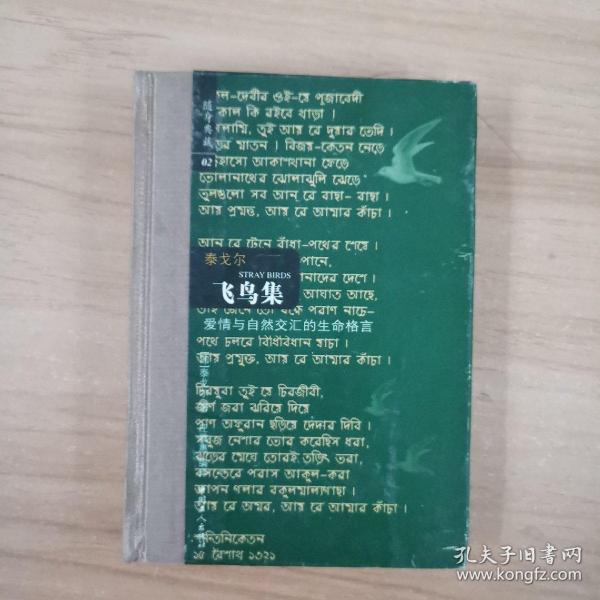 随身典藏
02
ল-দেবীর ওই-যে পূজাবেদী
কাল কি রইবে খাড়া।
তুই আয় রে দুয়ার ভেদি।
মাতন। বিজয়-কেতন নেড়ে
আকাশখানা ফেড়ে
ভোলানাথের ঝোলাঝুলি ঝেড়ে
ভুলগুলো সব আন্ রে বাছা-বাছা।
আয় প্রমত্ত, আয় রে আমার কাঁচা।
আন্ রে টেনে বাঁধা-পথের শেষে।
পানে,
দেশে।
আঘাত আছে,
বক্ষে পরাণ নাচে-
泰戈尔
STRAY BIRDS
飞鸟集
爱情与自然交汇的生命格言
পথে চলবে বিধিবিধান যাচা।
আয় প্রমুক্ত, আয় রে আমার কাঁচা।
চিরযুবা তুই যে চিরজীবী,
জীর্ণ জরা ঝরিয়ে দিয়ে
প্রাণ অফুরান ছড়িয়ে দেদার দিবি।
সবুজ নেশায় ভোর করেছিস ধরা,
ঝড়ের মেঘে তোরই তড়িৎ ভরা,
বসন্তেরে পরাস আকুল-করা
আপন গলার বকুলমাল্যগাছা।
আয় রে অমর, আয় রে আমার কাঁচা।
ন্তিনিকেতন
১৫ বৈশাখ ১৩২১
孔夫子旧书网
www.kongfz.com